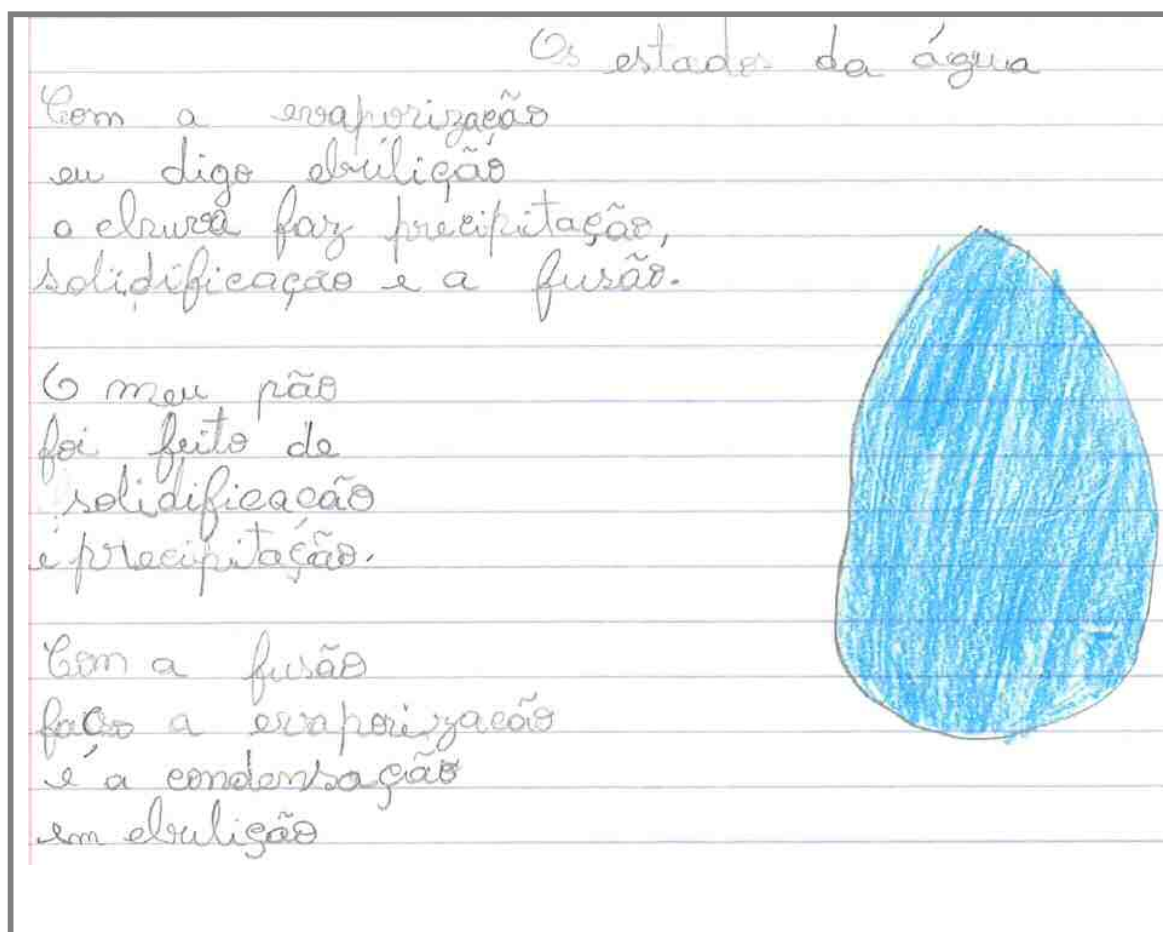 Os estados da água
Com a evaporização
eu digo ebulição
a chuva faz precipitação,
solidificação e a fusão.
O meu pão
foi feito de
solidificação
e precipitação.
Com a fusão
faço a evaporização
e a condensação
em ebulição